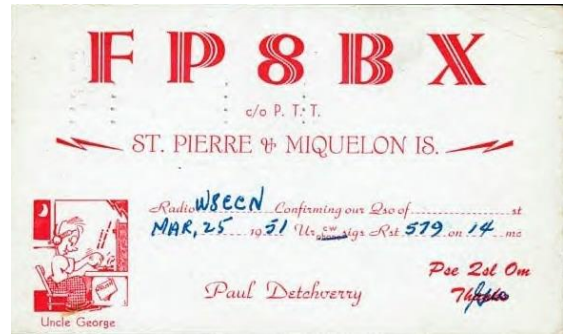 FP8BX
c/o P. T. T.
ST. PIERRE & MIQUELON IS.
Radio W8ECN Confirming our Qso of st
MAR, 25 1951 Ur cw sigs Rst 579 on 14 mc
Pse Qsl Om
Paul Detchverry
Uncle George